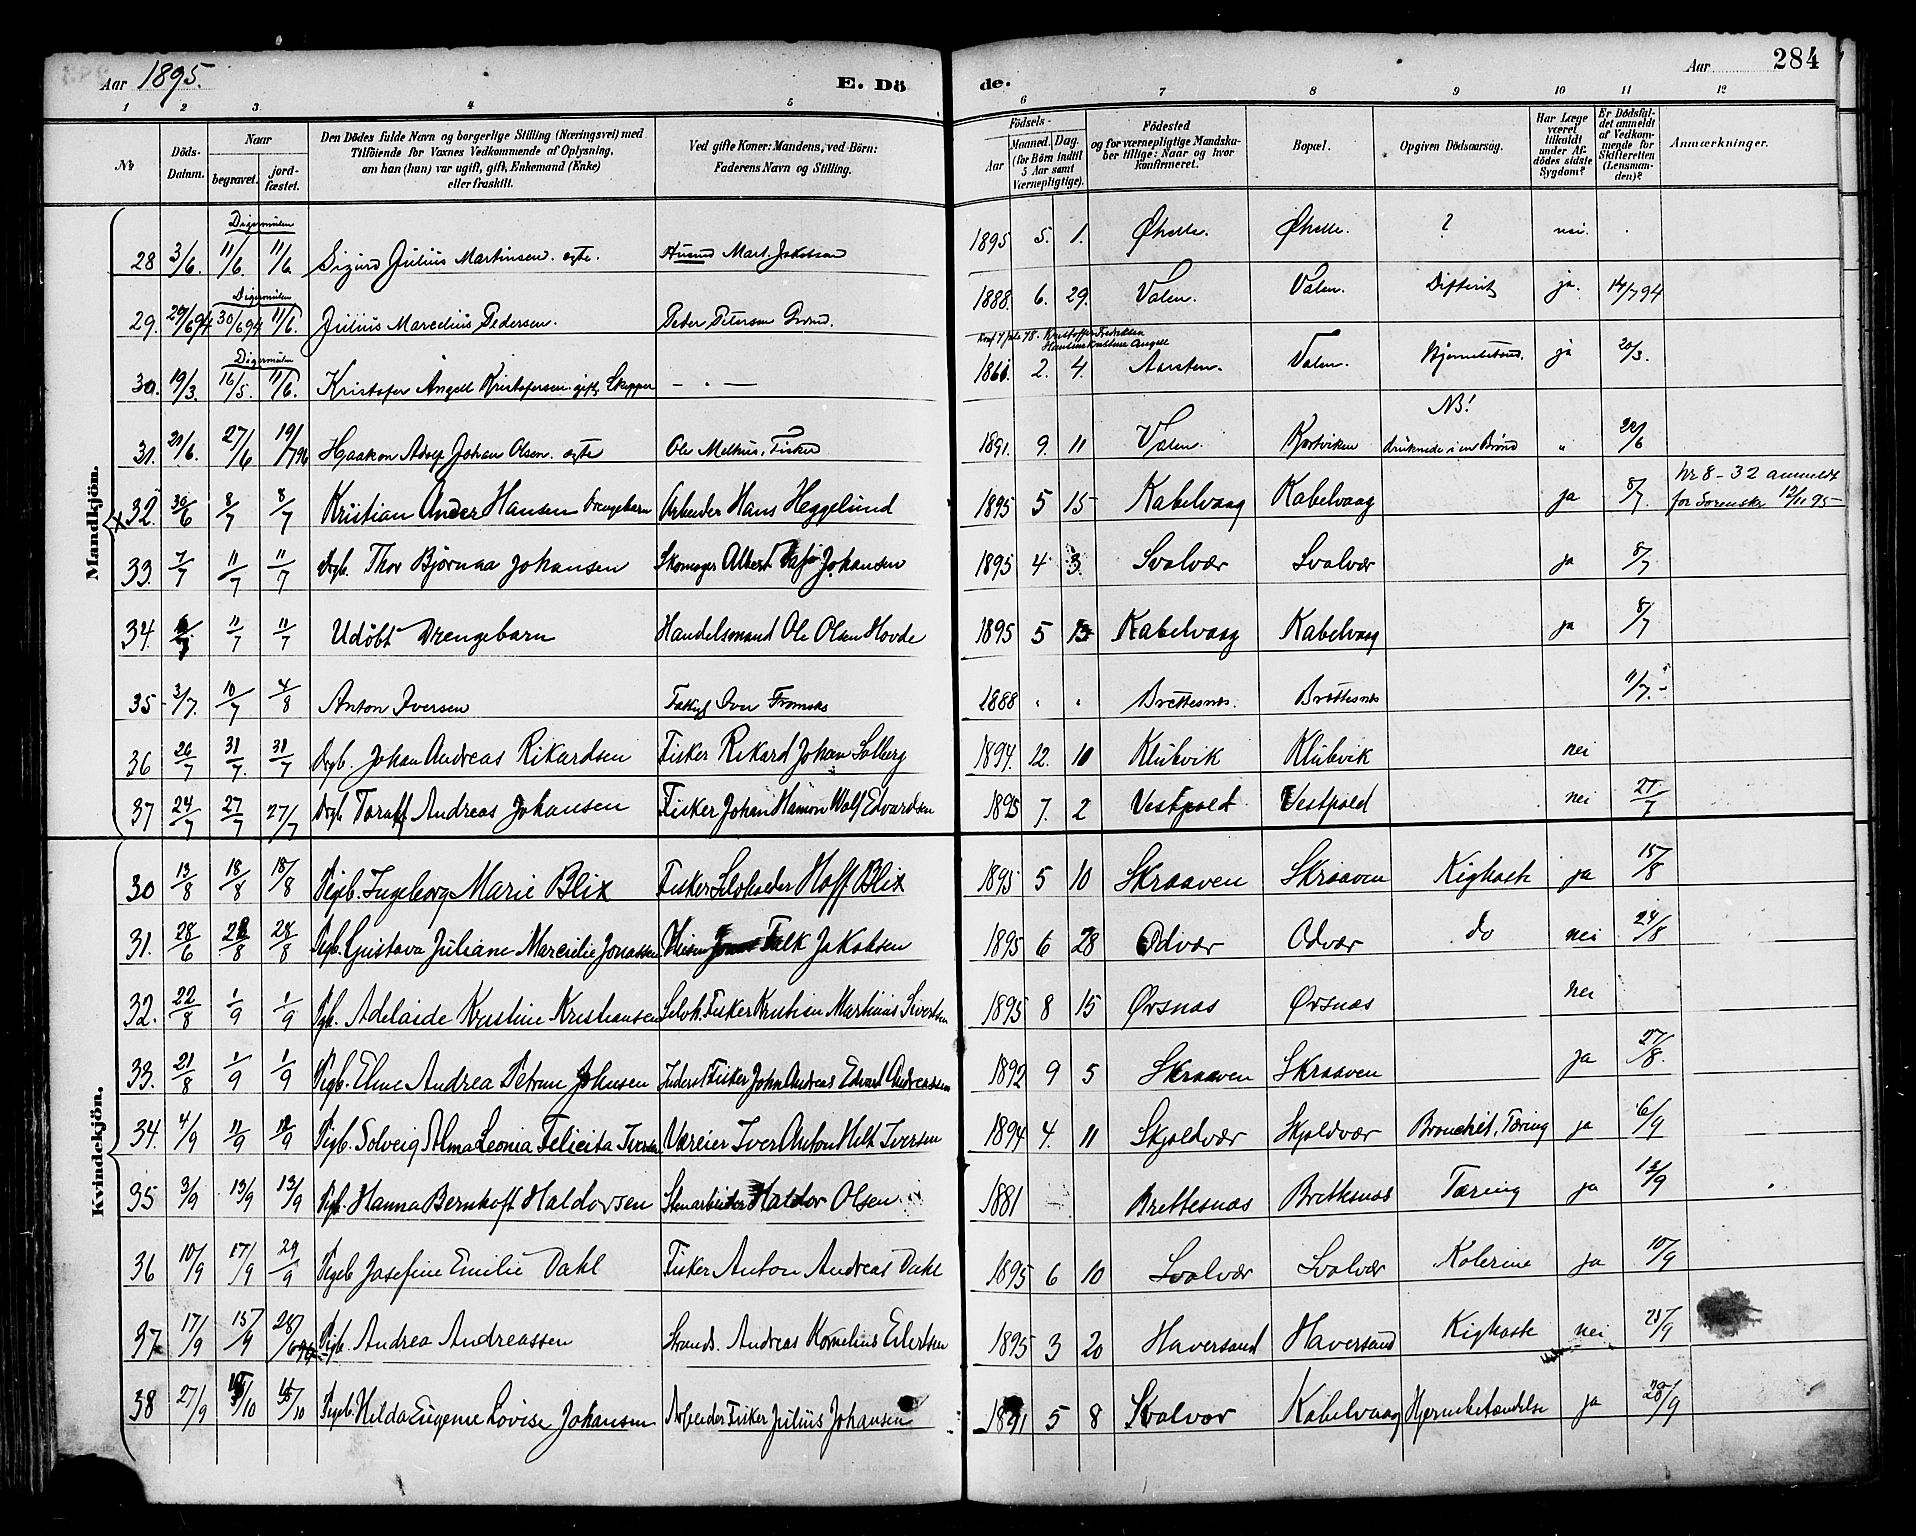 Aar 1895. E. Dö de. Aar 284
1 2 3 4 5 6 7 8 9 10 11 12
No
Döds-Datum.
Naar
begravet.
jordfæstet.
Den Dödes fulde Navn og borgerlige Stilling (Næringsvei) med Tilföiende for Voxnes Vedkommende af Oplysning, om han (hun) var ugift, gift, Enkemand (Enke) eller fraskilt.
Ved gifte Koner: Mandens, ved Börn: Faderens Navn og Stilling.
Födsels-
Aar
Maaned. Dag.
(for Börn indtil 5 Aar samt Værnepligtige).
Födested og for værnepligtige Mandskaber tillige: Naar og hvor konfirmeret.
Bopæl.
Opgiven Dödsaarsag.
Har Læge været tilkaldt under Afdödes sidste Sygdom?
Er Dödsfaldet anmeldt af Vedkommende for Skifteretten (Lensmanden)?
Anmærkninger.
Mandkjön.
Digermulen
28 3/6. 11/6 11/6 Sigurd Julius Martinsen. ægte. Husmd Mart. Jakobsen 1895 5. 1. Øhelle. Øhelle. ? nei.
Digermulen
29. 29/6 94 30/6 94 11/6. Julius Marcelius Pedersen. Peder Petersen 1888. 6. 29. Valen. Valen. Difterit ja. 14/7 94
Digermulen
30. 19/3. 16/5. 11/6. Kristofer Angell Kristofersen gift, Skipper — . — 2. 4. Aarsten. Valen. ja 20/3.
31. 11/6. 27/6 19/7 96 Haakon Adolf Johan Olsen. ægte Ole Melkus, Fisker 1891. 9. 11 Valen. Kortviken NB! druknede i en Brønd " 22/6
32. 30/6 8/7 8/7 Kristian Ander Hansen Drengebarn Arbeider Hans Heggelund 1895 5 15 Kabelvaag Kabelvaag ja 8/7. Nr 8-32 anmeldt for Sorenskr. 12/11 95
33. 7/7 11/7 11/7 Drgb. Thor Bjørnaa Johansen Skomager Albert Johansen 1895 4 3. Svolvær Svolvær ja 8/7
34. 11/7 11/7 Udøbt Drengebarn Handelsmand Ole Olsen Hovde 1895 5 Kabelvaag Kabelvaag ja 8/7
35 3/7. 10/7 4/8 Anton Iversen Iver 1888 " " Brettesnes. Brettesnes 11/7.
36 26/7 31/7. 31/7 Drgb. Johan Andreas Rikardsen Fisker Rikard Johan Solberg 1894. 12. 10 Klubvik Klubvik nei
37 24/7 27/7 27/7 Drgb Toralf Andreas Johansen Fisker Johan Hamon Wolf Edvardsen 1895 7. 2 Vestpold Vestpold nei 27/7
Kvindekjön.
30 13/8 18/8 18/8 Pigb. Ingeborg Marie Blix Fisker Selvbeder Hoff Blix 1895 5 10 Skraaven Skraaven Kighoste ja 15/8
31. 28/6 28/8 28/8 Pigb. Gustava Juliane Marcilie Jonassen Falk Jakobsen 1895 6 28 Odvær Odvær do nei 24/8
32. 22/8 1/9 1/9 Pgb. Adelaide Kristine Kristiansen Selvh. Fisker Kristian Martinus Sivertsen 1895 8 15 Ørsnæs Ørsnæs nei
33. 21/8 1/9 1/9 Pigb. Eline Andrea Petrine Johnsen Inderst Fisker John Andreas Edvard Andreassen 1892 9 5 Skraaven Skraaven ja 27/8.
34. 4/9 11/9 12/9 Pigb. Solveig Alma Leonia Felicita Iversen Væreier Iver Anton Hilt Iversen 1894 4. 11 Skjoldvær Skjoldvær Bronchit, Tæring ja 6/9
35 3/9 13/9 13/9 Pigb. Hanna Bernhoft Haldorsen Stenarbeider Haldor Olsen 1881 — Brettesnæs Brettesnæs Tæring ja 13/9
36 10/9 17/9 29/9 Pigeb Josefine Emilie Dahl Fisker Anton Andreas Dahl 1895 6 10 Svolvær Svolvær Kolerine ja 10/9
37 17/9 15/9 28/6 96 Pigb. Andrea Andreassen Strands. Andreas Kornelius Eilertsen 1895 3 20 Haversand Haversand Kighoste nei 23/9
38 27/9 Pigb. Hilda Eugenie Lovise Johansen Arbeider Fisker Julius Johansen 1891 5 8 Svolvær Kabelvaag Hjernebetændelse ja 28/9